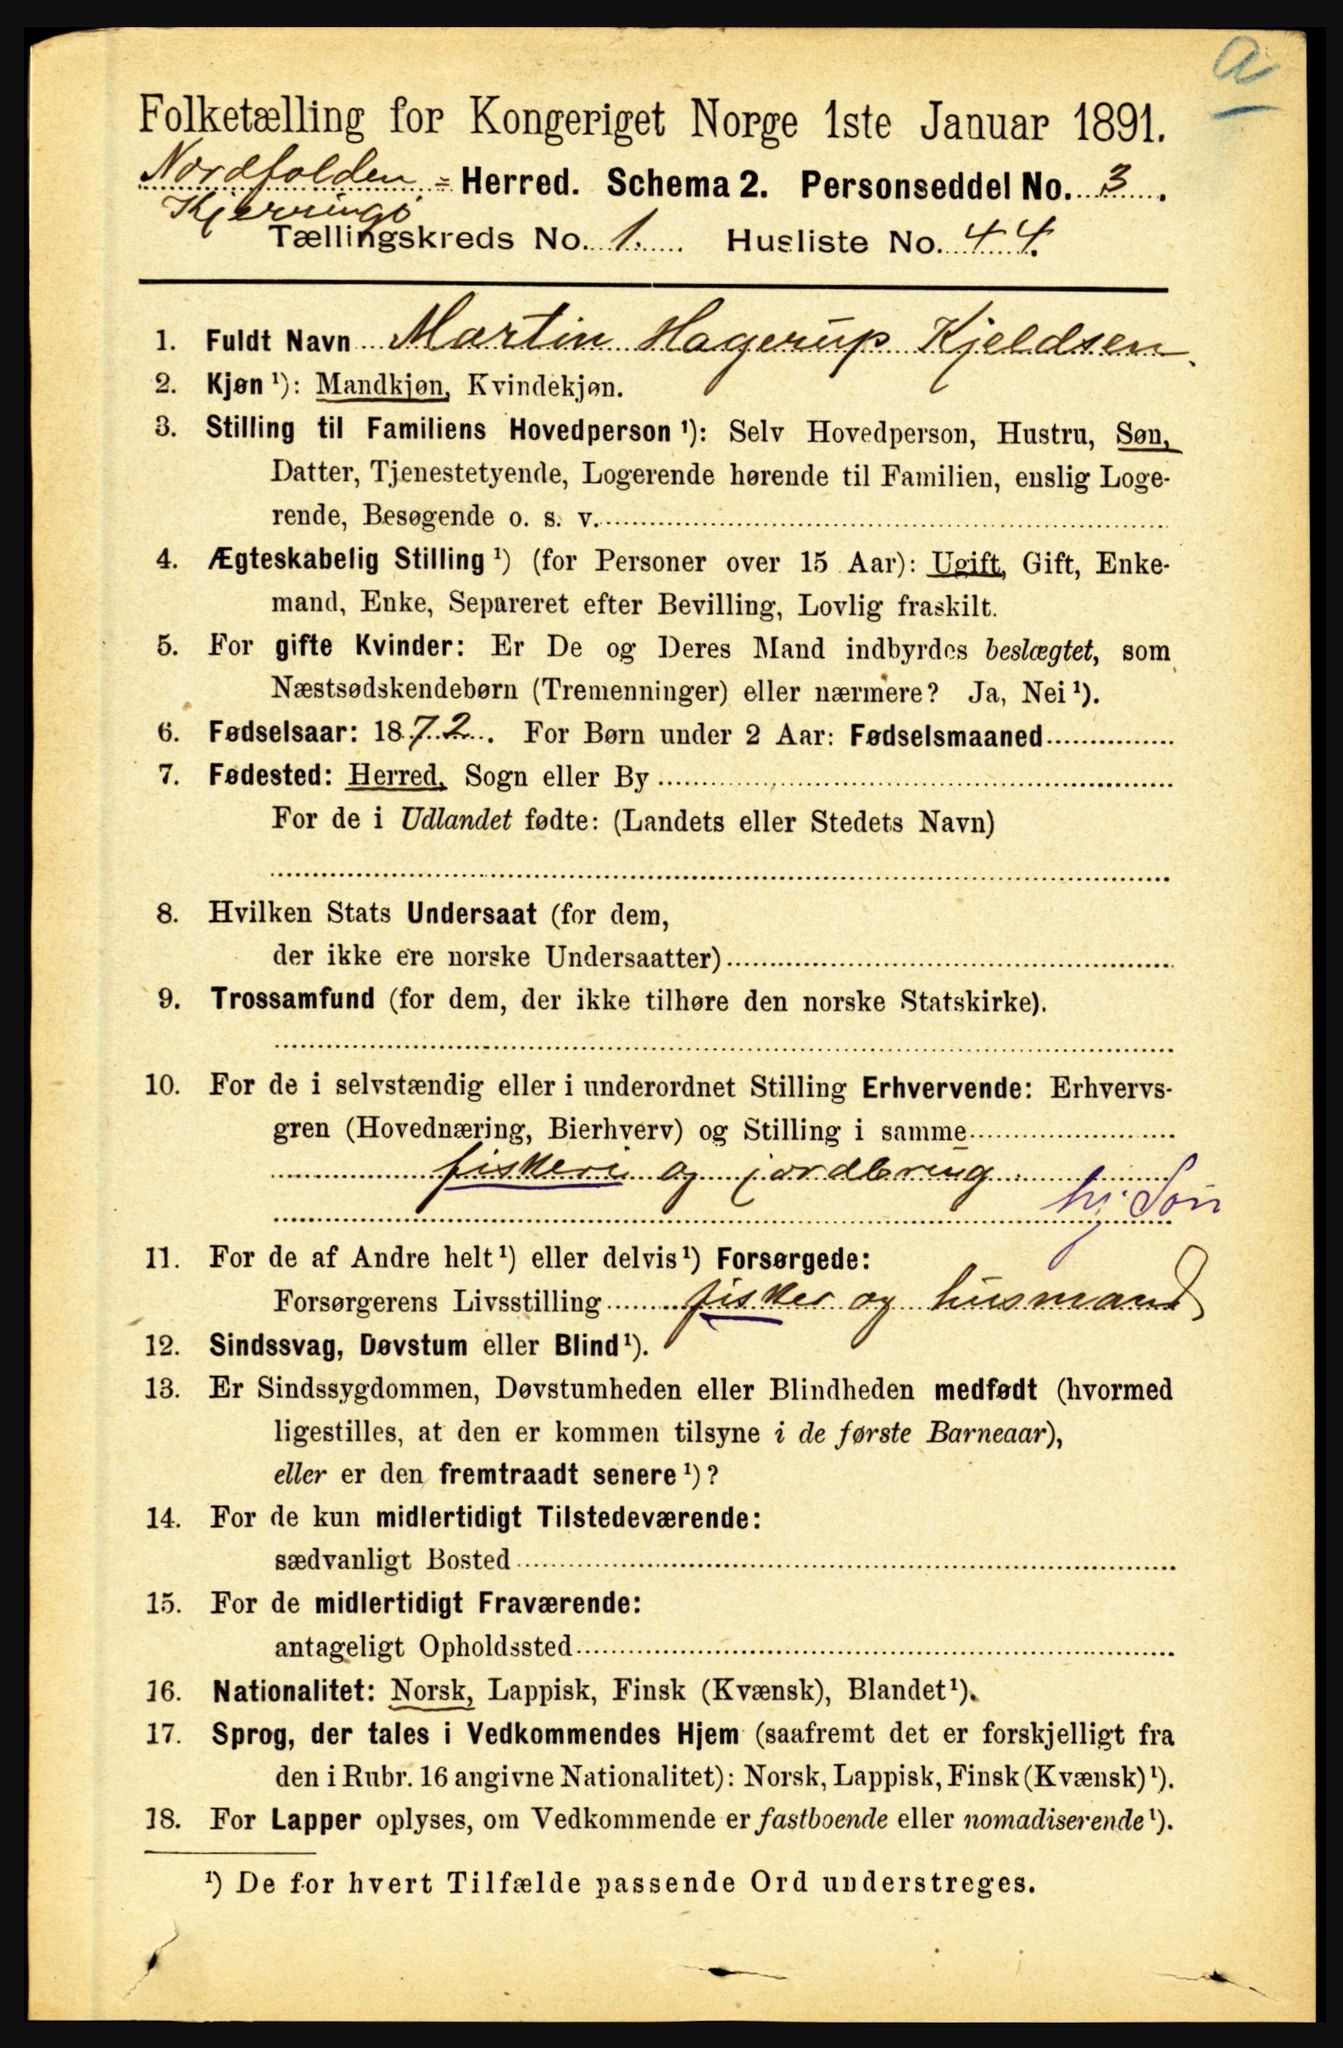 a
Folketælling for Kongeriget Norge 1ste Januar 1891.
Nordfolden = Herred. Schema 2. Personseddel No. 3.
Kjerringø
Tællingskreds No. 1. Husliste No. 44.
1. Fuldt Navn Martin Hagerup Kjeldsen.
2. Kjøn¹): Mandkjøn, Kvindekjøn.
3. Stilling til Familiens Hovedperson¹): Selv Hovedperson, Hustru, Søn,
Datter, Tjenestetyende, Logerende hørende til Familien, enslig Loge-
rende, Besøgende o. s. v.
4. Ægteskabelig Stilling¹) (for Personer over 15 Aar): Ugift, Gift, Enke-
mand, Enke, Separeret efter Bevilling, Lovlig fraskilt.
5. For gifte Kvinder: Er De og Deres Mand indbyrdes beslægtet, som
Næstsødskendebørn (Tremenninger) eller nærmere? Ja, Nei¹).
6. Fødselsaar: 1872. For Børn under 2 Aar: Fødselsmaaned
7. Fødested: Herred, Sogn eller By
For de i Udlandet fødte: (Landets eller Stedets Navn)
8. Hvilken Stats Undersaat (for dem,
der ikke ere norske Undersaatter)
9. Trossamfund (for dem, der ikke tilhøre den norske Statskirke).
10. For de i selvstændig eller i underordnet Stilling Erhvervende: Erhvervs-
gren (Hovednæring, Bierhverv) og Stilling i samme
fiskeri og jordbrug.
hj. Søn
11. For de af Andre helt¹) eller delvis¹) Forsørgede:
Forsørgerens Livsstilling fisker og husmand
12. Sindssvag, Døvstum eller Blind¹).
13. Er Sindssygdommen, Døvstumheden eller Blindheden medfødt (hvormed
ligestilles, at den er kommen tilsyne i de første Barneaar),
eller er den fremtraadt senere¹)?
14. For de kun midlertidigt Tilstedeværende:
sædvanligt Bosted
15. For de midlertidigt Fraværende:
antageligt Opholdssted
16. Nationalitet: Norsk, Lappisk, Finsk (Kvænsk), Blandet¹).
17. Sprog, der tales i Vedkommendes Hjem (saafremt det er forskjelligt fra
den i Rubr. 16 angivne Nationalitet): Norsk, Lappisk, Finsk (Kvænsk)¹).
18. For Lapper oplyses, om Vedkommende er fastboende eller nomadiserende¹).
¹) De for hvert Tilfælde passende Ord understreges.